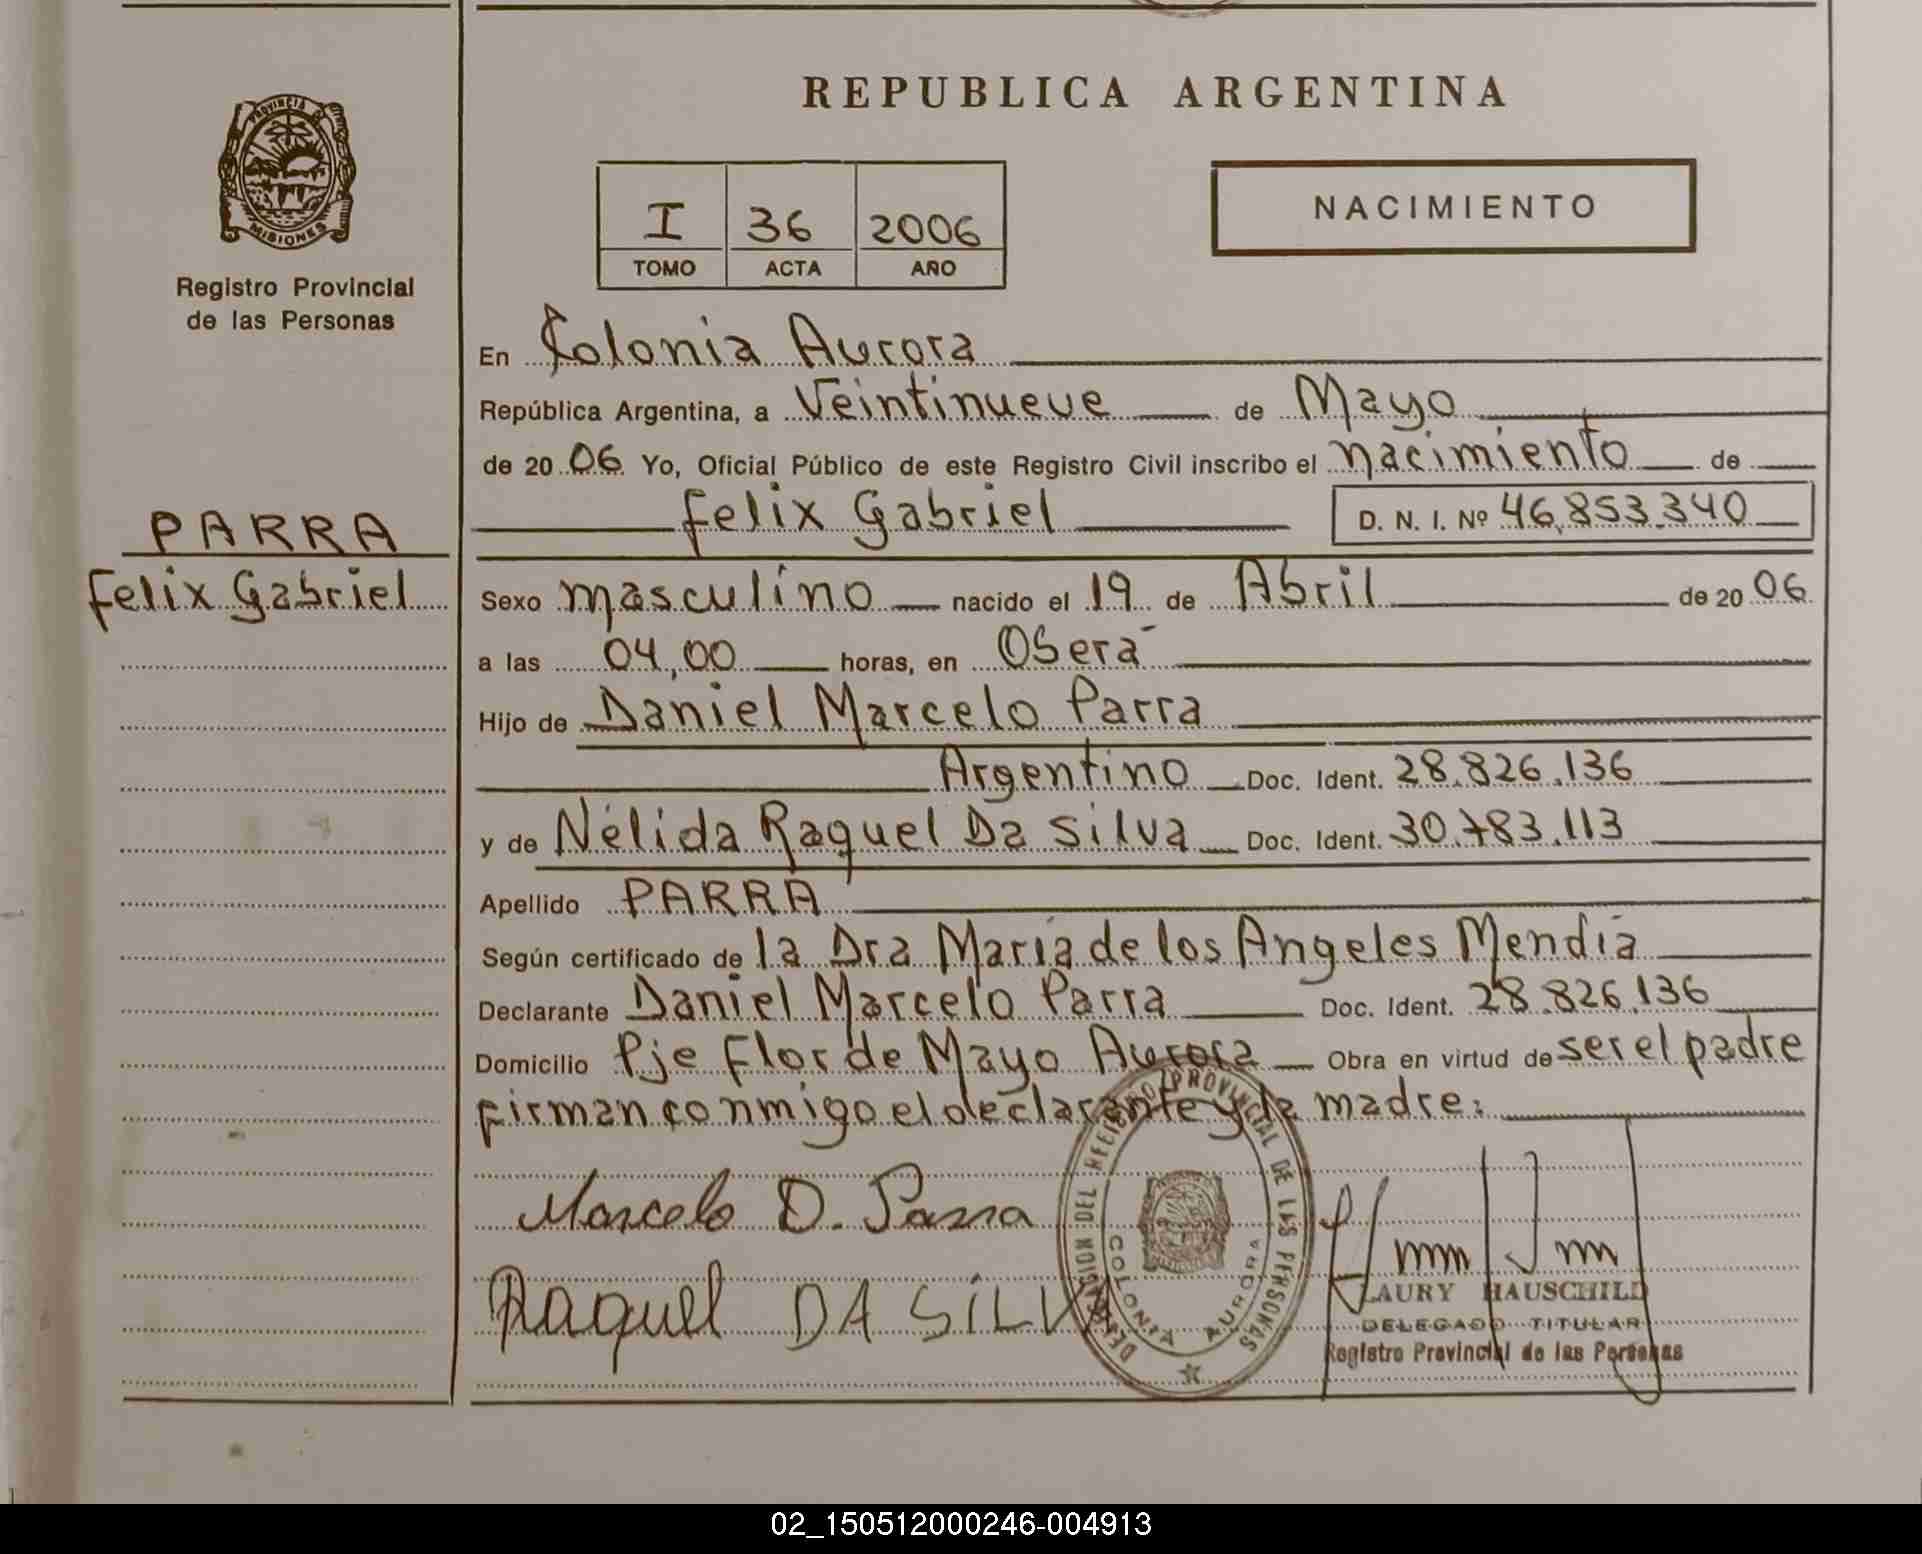 REPUBLICA ARGENTINA
PROVINCIA
MISIONES
Registro Provincial
de las Personas
I 36 2006
TOMO ACTA AÑO
NACIMIENTO
En Colonia Aurora
República Argentina, a Veintinueve de Mayo
de 20 06 Yo, Oficial Público de este Registro Civil inscribo el nacimiento de
Felix Gabriel D. N. I. Nº 46.853.340
PARRA
Felix Gabriel
Sexo masculino nacido el 19 de Abril de 20 06
a las 04,00 horas, en Oberá
Hijo de Daniel Marcelo Parra
Argentino Doc. Ident. 28.826.136
y de Nélida Raquel Da Silva Doc. Ident. 30.783.113
Apellido PARRA
Según certificado de la Dra María de los Angeles Mendía
Declarante Daniel Marcelo Parra Doc. Ident. 28.826.136
Domicilio Pje Flor de Mayo Aurora Obra en virtud de ser el padre
firman conmigo el declarante y la madre:
Marcelo D. Parra
Raquel DA SILVA
DELEGACION DEL REGISTRO PROVINCIAL DE LAS PERSONAS
COLONIA AURORA
LAURY HAUSCHILD
DELEGADO TITULAR
Registro Provincial de las Personas
02_150512000246-004913